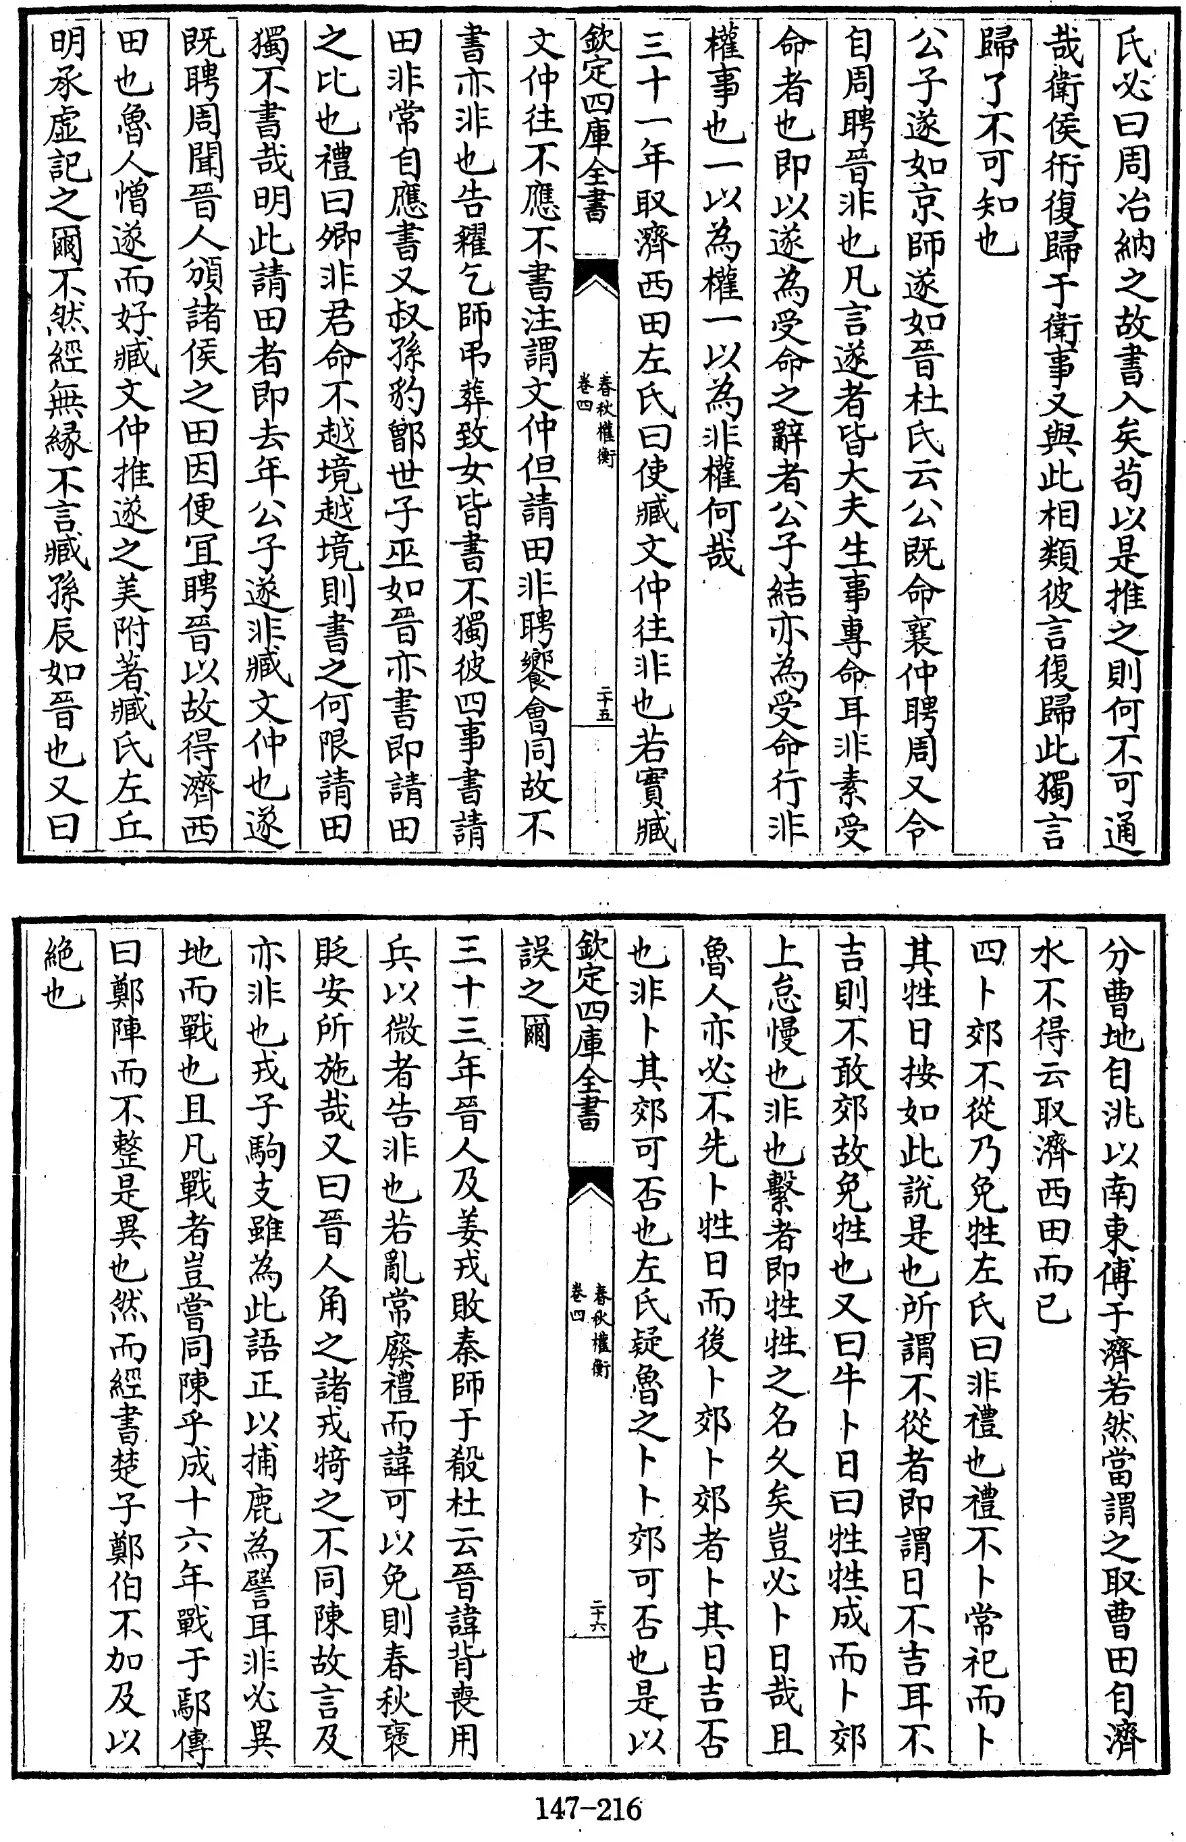 氏必曰周冶納之故書入矣苟以是推之則何不可通
哉衛侯衎復歸于衛事又與此相類彼言復歸此獨言
歸了不可知也
公子遂如京師遂如晉杜氏云公既命襄仲聘周又令
自周聘晉非也凡言遂者皆大夫生事專命耳非素受
命者也即以遂為受命之辭者公子結亦為受命行非
權事也一以為權一以為非權何哉
三十一年取濟西田左氏曰使臧文仲往非也若實臧
欽定四庫全書
春秋權衡
卷四
二十五
文仲往不應不書注謂文仲但請田非聘饗會同故不
書亦非也告糴乞師弔葬致女皆書不獨彼四事書請
田非常自應書又叔孫豹鄫世子巫如晉亦書即請田
之比也禮曰卿非君命不越境越境則書之何限請田
獨不書哉明此請田者即去年公子遂非臧文仲也遂
既聘周聞晉人頒諸侯之田因便宜聘晉以故得濟西
田也魯人憎遂而好臧文仲推遂之美附著臧氏左丘
明承虛記之爾不然經無緣不言臧孫辰如晉也又曰
分曹地自洮以南東傅于濟若然當謂之取曹田自濟
水不得云取濟西田而已
四卜郊不從乃免牲左氏曰非禮也禮不卜常祀而卜
其牲日按如此說是也所謂不從者即謂日不吉耳不
吉則不敢郊故免牲也又曰牛卜日曰牲牲成而卜郊
上怠慢也非也繫者即牲牲之名久矣豈必卜日哉且
魯人亦必不先卜牲日而後卜郊卜郊者卜其日吉否
也非卜其郊可否也左氏疑魯之卜卜郊可否也是以
欽定四庫全書
春秋權衡
卷四
二十六
誤之爾
三十三年晉人及姜戎敗秦師于殽杜云晉諱背喪用
兵以微者告非也若亂常廢禮而諱可以免則春秋襃
貶安所施哉又曰晉人角之諸戎犄之不同陳故言及
亦非也戎子駒支雖為此語正以捕鹿為譬耳非必異
地而戰也且凡戰者豈嘗同陳乎成十六年戰于鄢傳
曰鄭陣而不整是異也然而經書楚子鄭伯不加及以
絶也
147-216